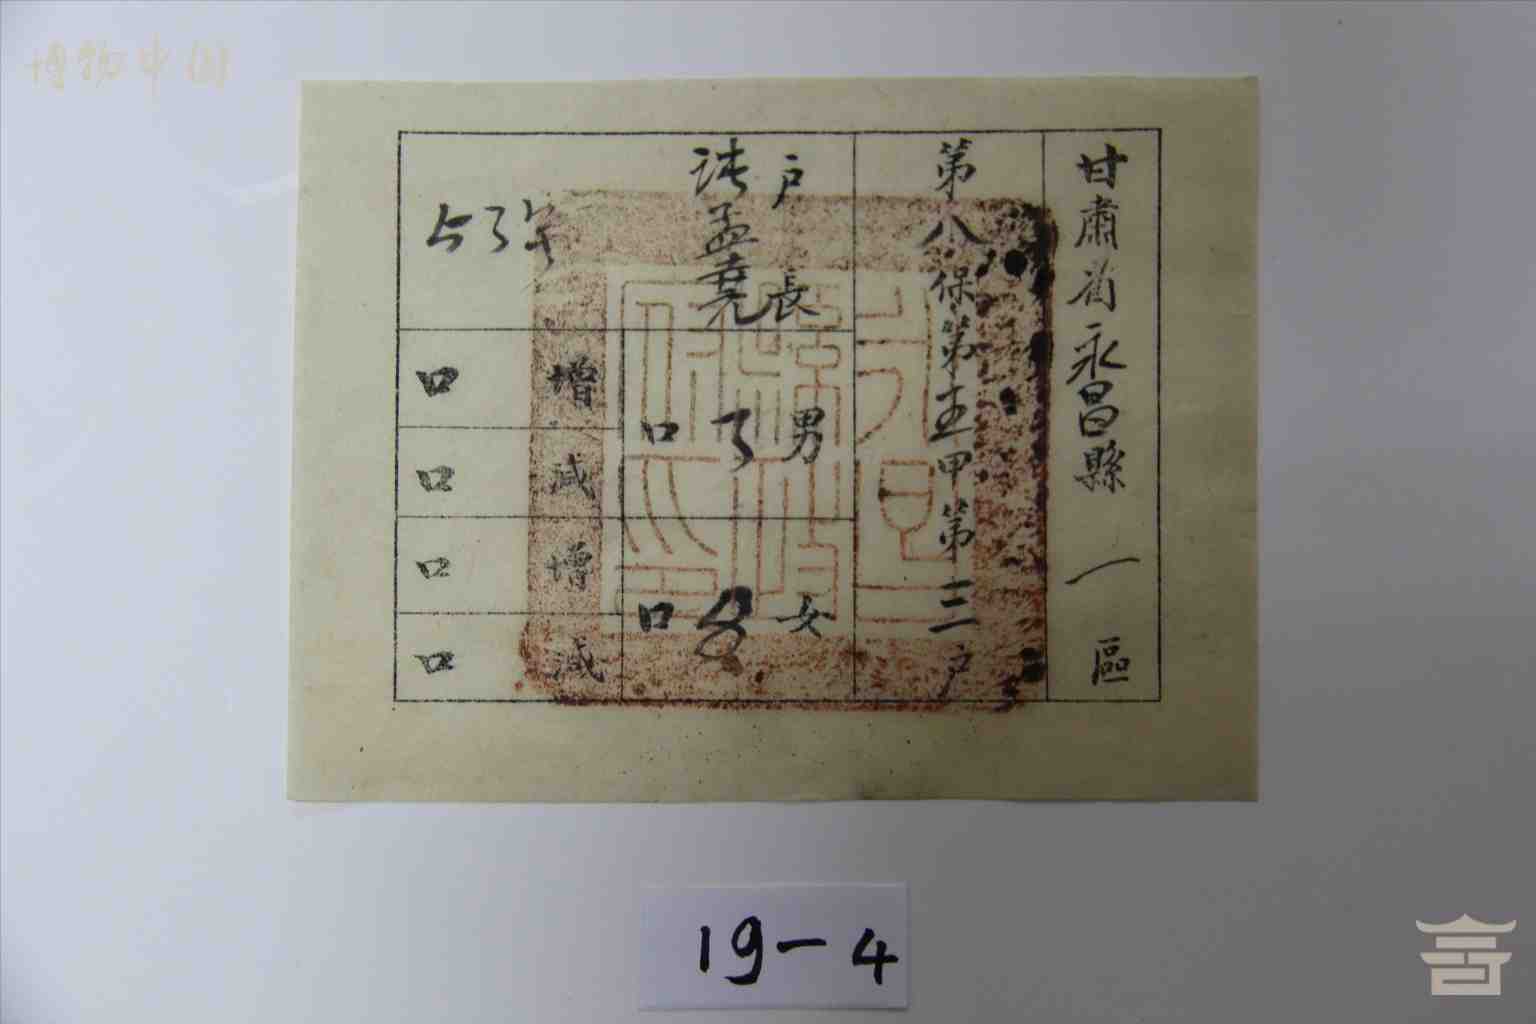 博物中国
甘肅省永昌縣一區
第八保第五甲第三戶
戶長
孟堯
男
口
女
口
增 口
減 口
增 口
減 口
19-4